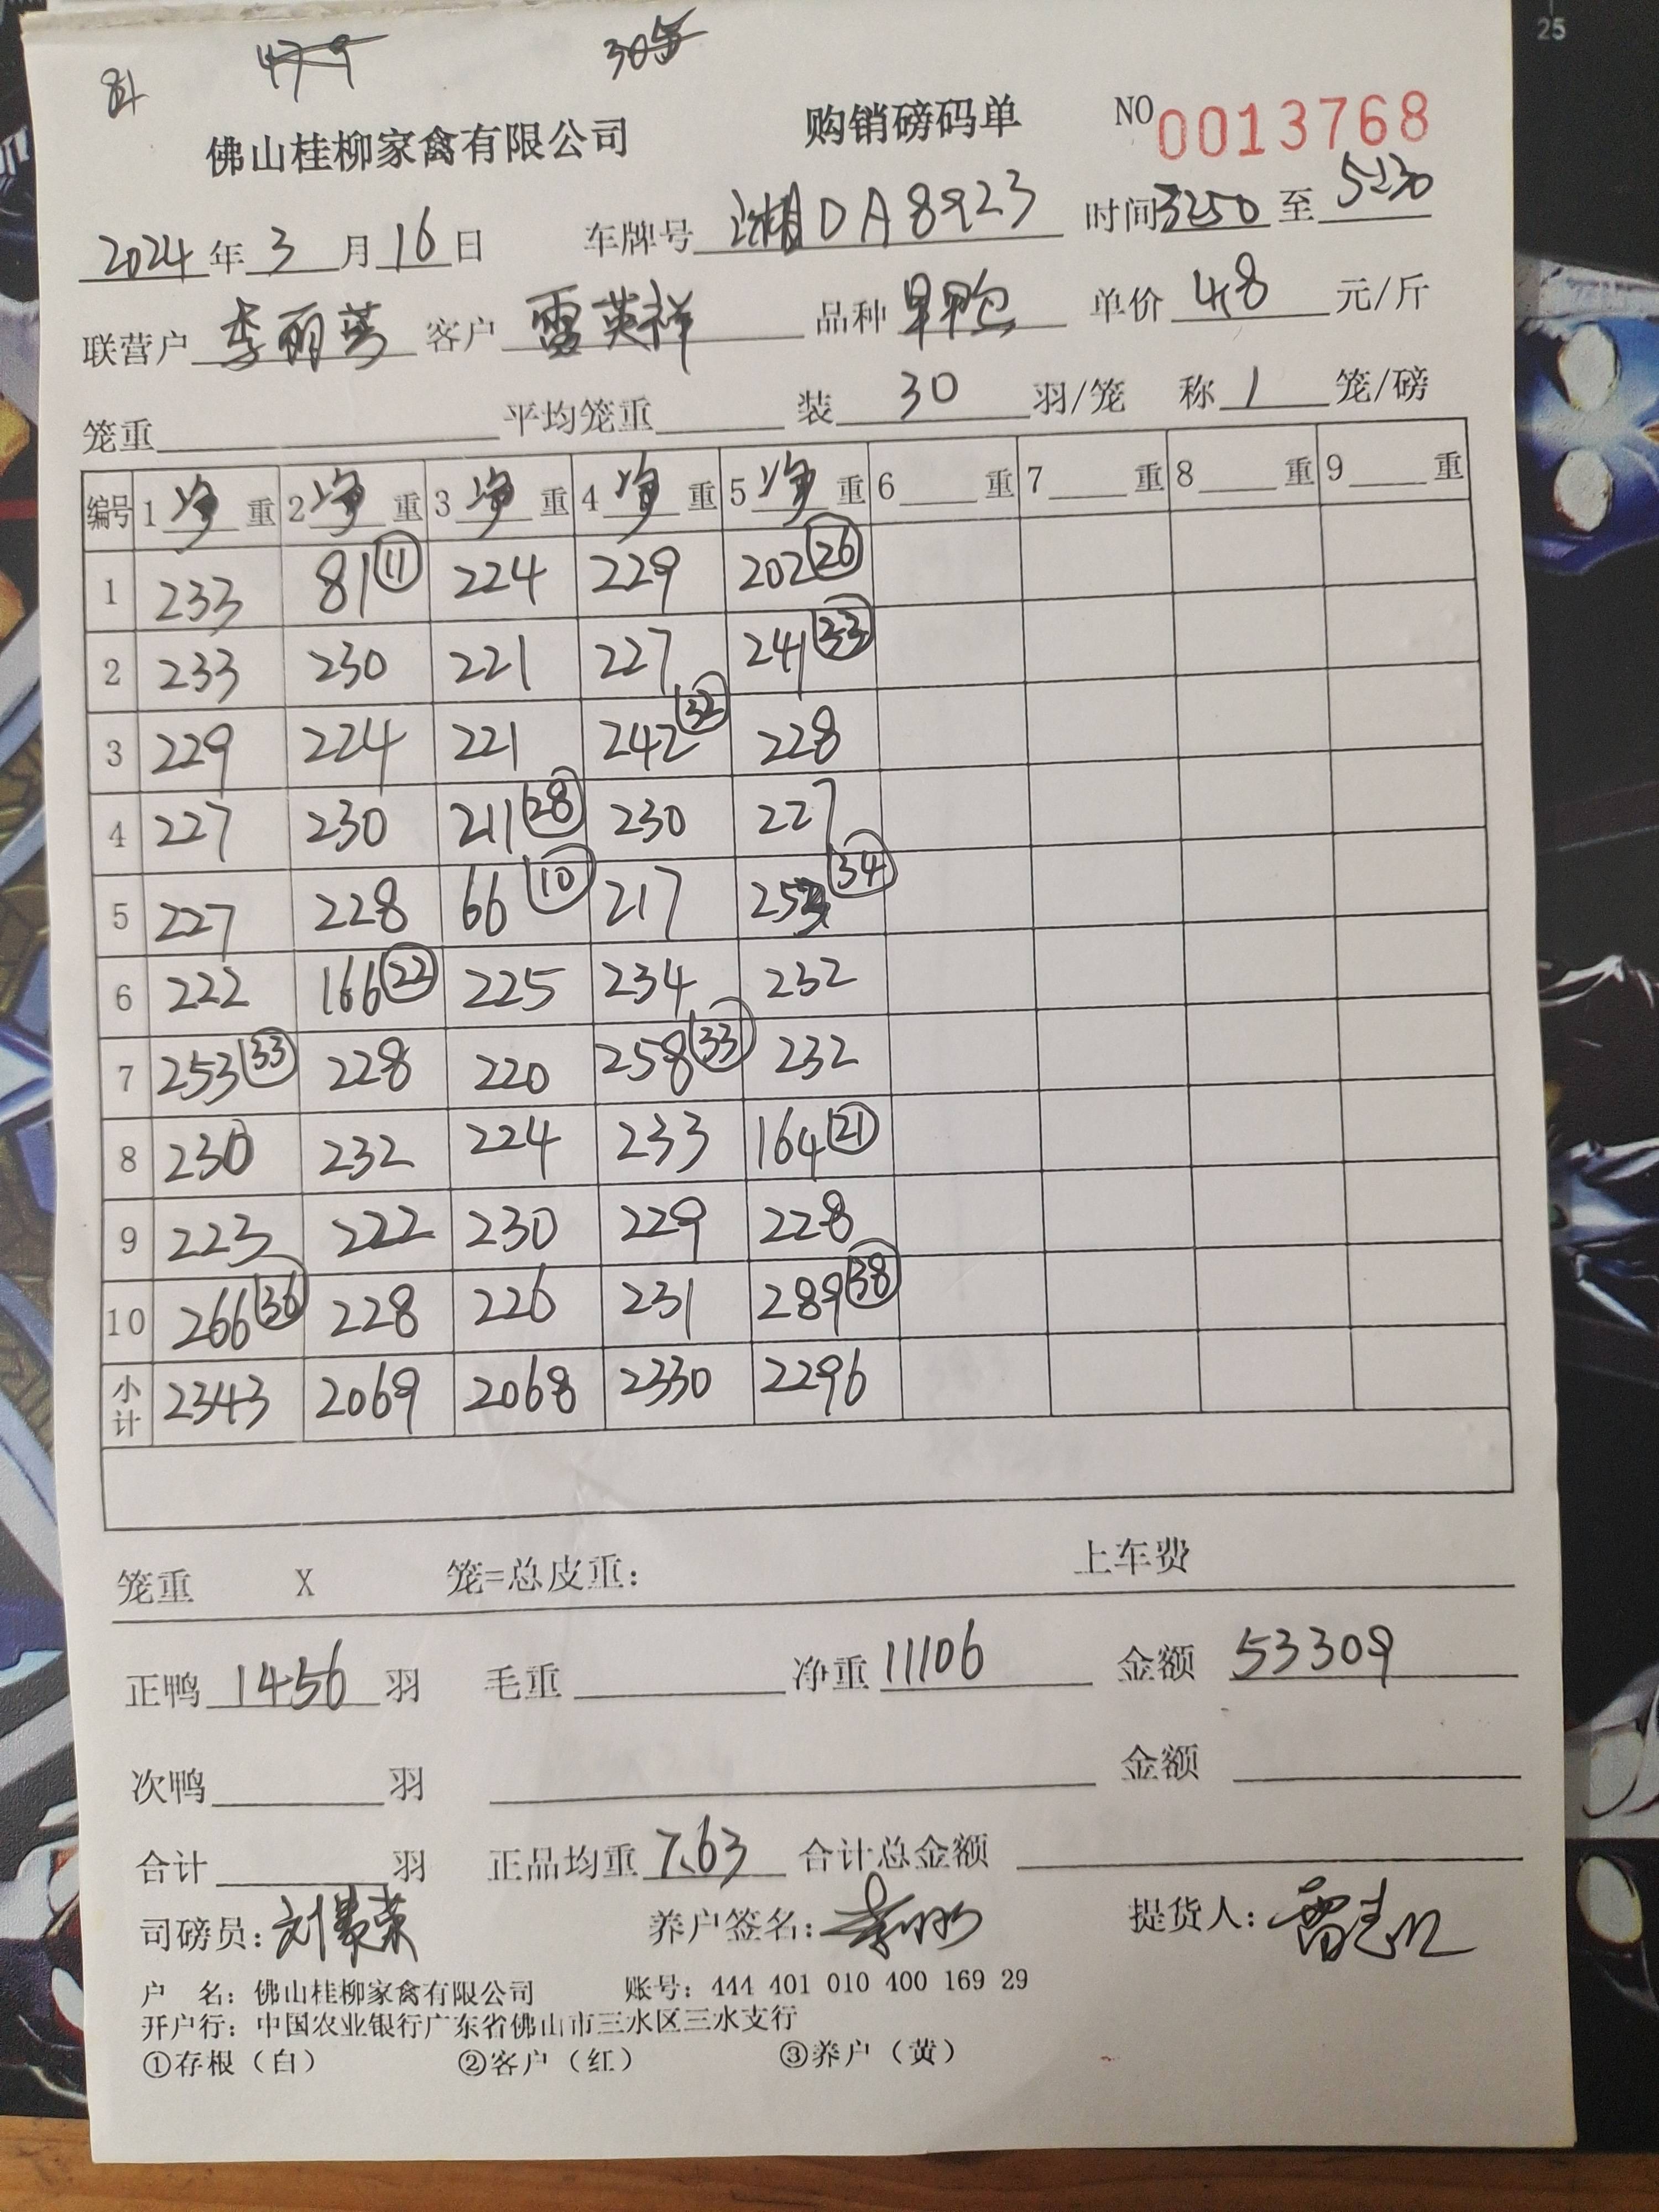 305
佛山桂柳家禽有限公司 购销磅码单 NO 0013768
2024 年 3 月 16 日 车牌号 湘DA8923 时间 3:50 至 5:30
联营户 李丽芬 客户 雷英祥 品种 旱鸭 单价 4.8 元/斤
笼重 平均笼重 装 30 羽/笼 称 1 笼/磅
编号 1 净 重 2 净 重 3 净 重 4 净 重 5 净 重 6 重 7 重 8 重 9 重
1 233 81 11 224 229 202 26
2 233 230 221 227 241 33
3 229 224 221 242 32 228
4 227 230 211 28 230 227
5 227 228 66 10 217 253 34
6 222 166 22 225 234 232
7 253 33 228 220 258 33 232
8 230 232 224 233 164 21
9 223 222 230 229 228
10 266 36 228 226 231 289 38
小计 2343 2069 2068 2330 2296
笼重 X 笼=总皮重: 上车费
正鸭 1456 羽 毛重 净重 11106 金额 53309
次鸭 羽 金额
合计 羽 正品均重 7.63 合计总金额
司磅员: 养户签名: 提货人:
户 名: 佛山桂柳家禽有限公司 账号: 444 401 010 400 169 29
开户行: 中国农业银行广东省佛山市三水区三水支行
①存根（白） ②客户（红） ③养户（黄）
25